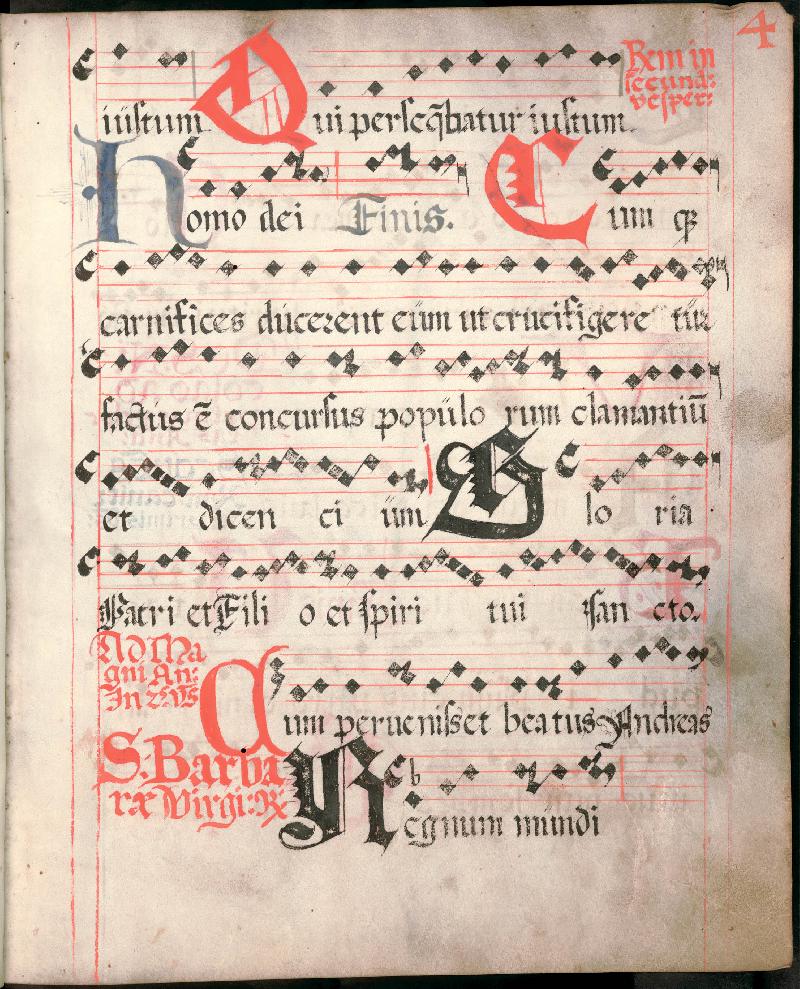 4
iuſtum Qui perſeq̄batur iuſtum.
Rem in
ſecund:
veſper:
Homo dei Finis. Cum
carnifices ducerent eum ut crucifigere tur
factus ē concurſus populo rum clamantiū
et dicen ci um Glo ria
Patri et Fili o et ſpiri tui ſan cto.
Ad Ma
gni An:
In
Cum perueniſset beatus Andreas
S: Barba
ræ Virgi: ℟
Regnum mundi